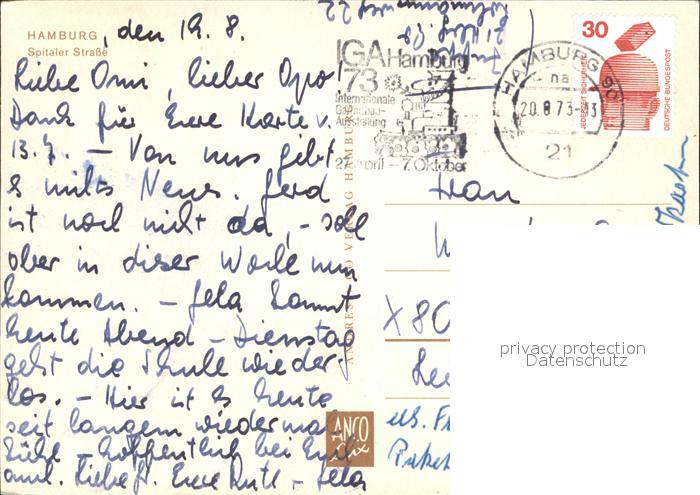 HAMBURG
Spitaler Straße
, den 19. 8.
Liebe Omi, lieber Opa!
Dank für Eure Karte v.
13.7. – Von uns gibt
es nichts Neues. Gerd
ist noch nicht da, – soll
aber in dieser Woche nun
kommen. – Gela kommt
heute Abend – Dienstag
geht die Schule wieder
los. – Hier ist es heute
seit langem wieder mal
kühl – hoffentlich bei Euch
auch. Liebe Gr. Eure Ruth – Gela
IGA Hamburg
'73
Internationale
Gartenbau-
Ausstellung
27. April – 7. Oktober
HAMBURG 90
na
20.8.73-13
21
30
JEDERZEIT SICHERHEIT
DEUTSCHE BUNDESPOST
ANDRES + CO VERLAG HAMBURG
ANCO
Frau
X80
privacy protection
Datenschutz